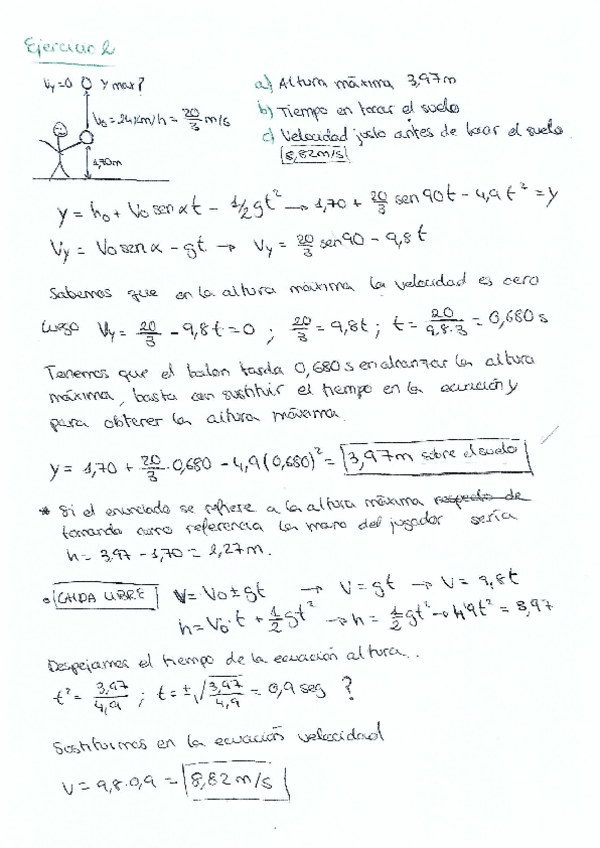 Ejercicio 2
Vy=0 y max?
V₀=24km/h = 20/3 m/s
1,70m
a) Altura máxima 3,97m
b) Tiempo en tocar el suelo
c) Velocidad justo antes de tocar el suelo
8,82m/s
y = h₀ + V₀ sen α t - 1/2 gt² → 1,70 + 20/3 sen 90 t - 4,9 t² = y
Vy = V₀ sen α - gt → Vy = 20/3 sen 90 - 9,8 t
Sabemos que en la altura máxima la velocidad es cero
Luego Vy = 20/3 - 9,8 t = 0 ; 20/3 = 9,8t ; t = 20/9,8·3 = 0,680 s
Tenemos que el balon tarda 0,680 s en alcanzar la altura
máxima, basta con sustituir el tiempo en la ecuación y
para obtener la altura máxima.
y = 1,70 + 20/3 · 0,680 - 4,9 (0,680)² = 3,97m sobre el suelo
* Si el enunciado se refiere a la altura máxima respecto de
tomando como referencia la mano del jugador sería
h = 3,97 - 1,70 = 2,27m.
• CAIDA LIBRE V = V₀ ± gt → V = gt → V = 9,8t
h = V₀·t + 1/2 gt² → h = 1/2 gt² → 4,9t² = 3,97
Despejamos el tiempo de la ecuación altura..
t² = 3,97/4,9 ; t = ±√3,97/4,9 = 0,9 seg ?
Sustituimos en la ecuación velocidad
V = 9,8·0,9 = 8,82 m/s